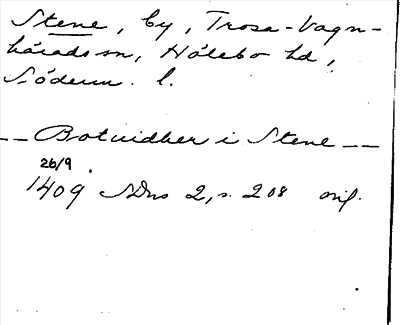 Stene, by, Trosa-Vagn-
härads sn, Hölebo hd,
Söderm. l.
-- Botuidher i Stene --
26/9
1409 SDns 2, s. 208 orig.